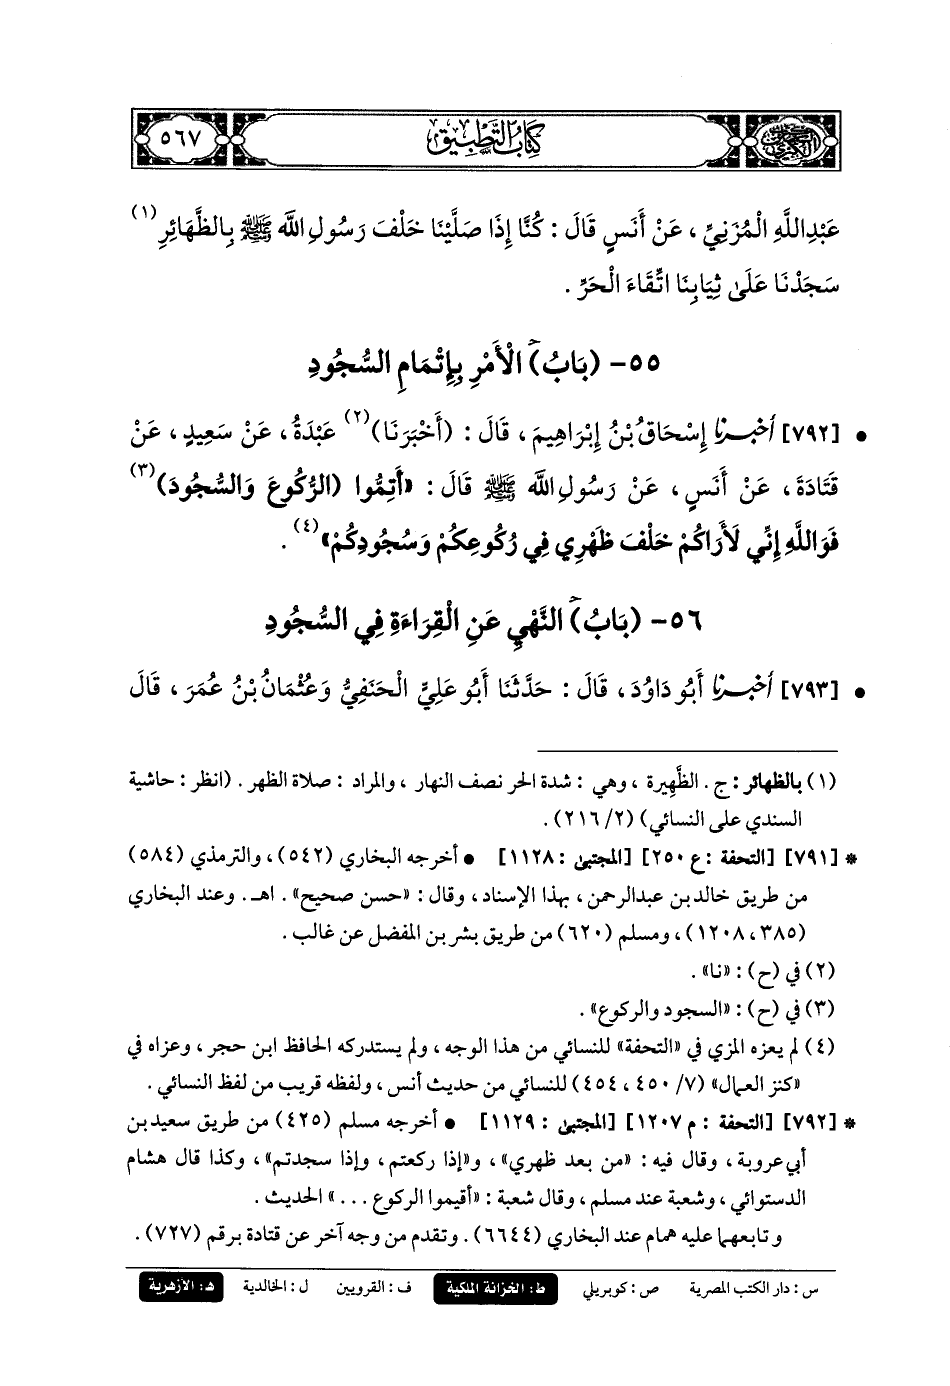 كتاب التطبيق
٥٦٧
عَبْدِاللَّهِ الْمُزَنِيِّ ، عَنْ أَنَسٍ قَالَ : كُنَّا إِذَا صَلَّيْنَا خَلْفَ رَسُولِ اللَّهِ ﷺ بِالظَّهَائِرِ(١)
سَجَدْنَا عَلَىٰ ثِيَابِنَا اتِّقَاءَ الْحَرِّ .
٥٥- (بَابُ) الْأَمْرِ بِإِتْمَامِ السُّجُودِ
• [٧٩٢] أخبرنا إِسْحَاقُ بْنُ إِبْرَاهِيمَ ، قَالَ : (أَخْبَرَنَا)(٢) عَبْدَةُ ، عَنْ سَعِيدٍ ، عَنْ
قَتَادَةَ ، عَنْ أَنَسٍ ، عَنْ رَسُولِ اللَّهِ ﷺ قَالَ : «أَتِمُّوا (الرُّكُوعَ وَالسُّجُودَ)(٣)
فَوَاللَّهِ إِنِّي لَأَرَاكُمْ خَلْفَ ظَهْرِي فِي رُكُوعِكُمْ وَسُجُودِكُمْ»(٤) .
٥٦- (بَابُ) النَّهْيِ عَنِ الْقِرَاءَةِ فِي السُّجُودِ
• [٧٩٣] أخبرنا أَبُو دَاوُدَ ، قَالَ : حَدَّثَنَا أَبُو عَلِيٍّ الْحَنَفِيُّ وَعُثْمَانُ بْنُ عُمَرَ ، قَالَ
(١) بالظهائر : ج . الظَّهِيرة ، وهي : شدة الحر نصف النهار ، والمراد : صلاة الظهر . (انظر : حاشية
السندي على النسائي) (٢/ ٢١٦) .
* [٧٩١] [التحفة : ع ٢٥٠] [المجتبى : ١١٢٨] • أخرجه البخاري (٥٤٢) ، والترمذي (٥٨٤)
من طريق خالد بن عبدالرحمن ، بهذا الإسناد ، وقال : «حسن صحيح» . اهـ. وعند البخاري
(٣٨٥ ، ١٢٠٨) ، ومسلم (٦٢٠) من طريق بشر بن المفضل عن غالب .
(٢) في (ح) : «نا» .
(٣) في (ح) : «السجود والركوع» .
(٤) لم يعزه المزي في «التحفة» للنسائي من هذا الوجه ، ولم يستدركه الحافظ ابن حجر ، وعزاه في
«كنز العمال» (٧/ ٤٥٠ ، ٤٥٤) للنسائي من حديث أنس ، ولفظه قريب من لفظ النسائي .
* [٧٩٢] [التحفة : م ١٢٠٧] [المجتبى : ١١٢٩] • أخرجه مسلم (٤٢٥) من طريق سعيد بن
أبي عروبة ، وقال فيه : «من بعد ظهري» ، و«إذا ركعتم ، وإذا سجدتم» ، وكذا قال هشام
الدستوائي ، وشعبة عند مسلم ، وقال شعبة : «أقيموا الركوع . . .» الحديث .
وتابعهما عليه همام عند البخاري (٦٦٤٤) . وتقدم من وجه آخر عن قتادة برقم (٧٢٧) .
س : دار الكتب المصرية ص : كوبريلي ط : الخزانة الملكية ف : القرويين ل : الخالدية هـ : الأزهرية